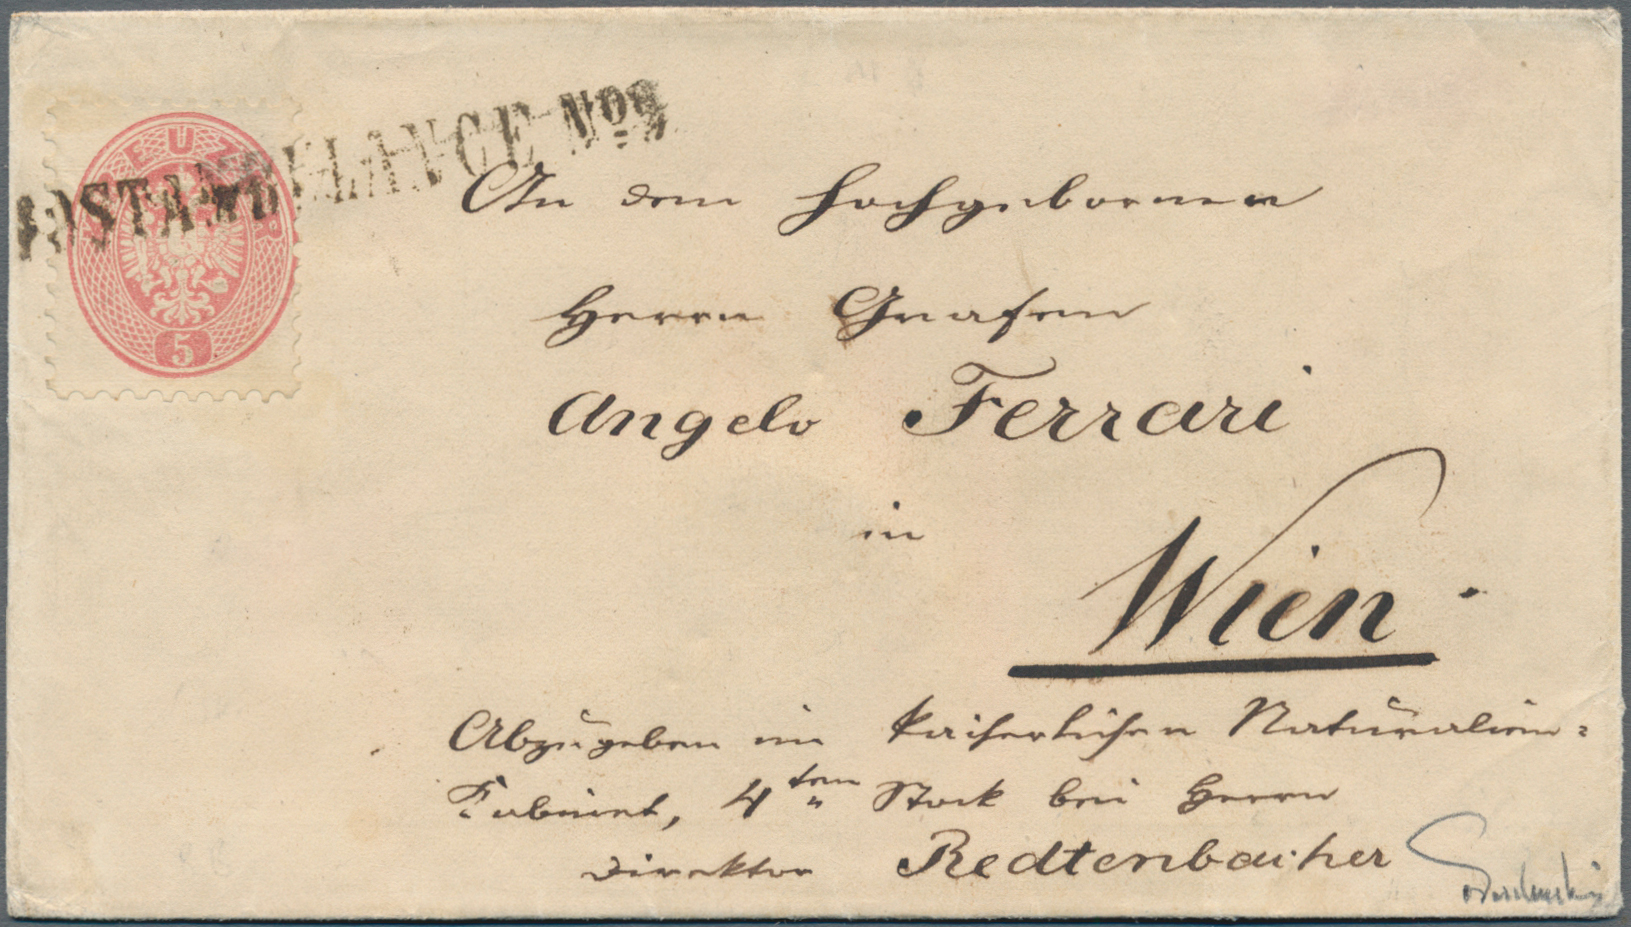 POSTAMBULANCE No 8
KREUZER
5
An dem Hochgebornen
Herrn Grafen
Angelo Ferrari
in
Wien.
Abzugeben im Kaiserlichen Naturalien=
Kabinet, 4ten Stock bei Herrn
Direktor Redtenbacher